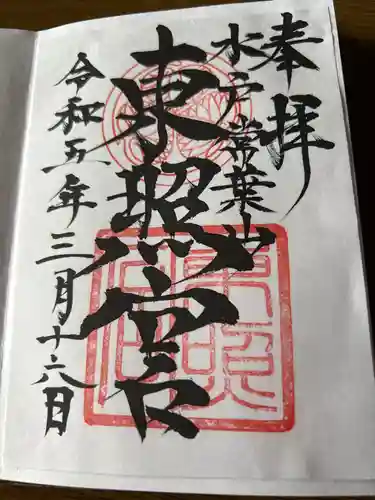 奉拝
水戸常葉山
東照宮
令和五年三月十六日